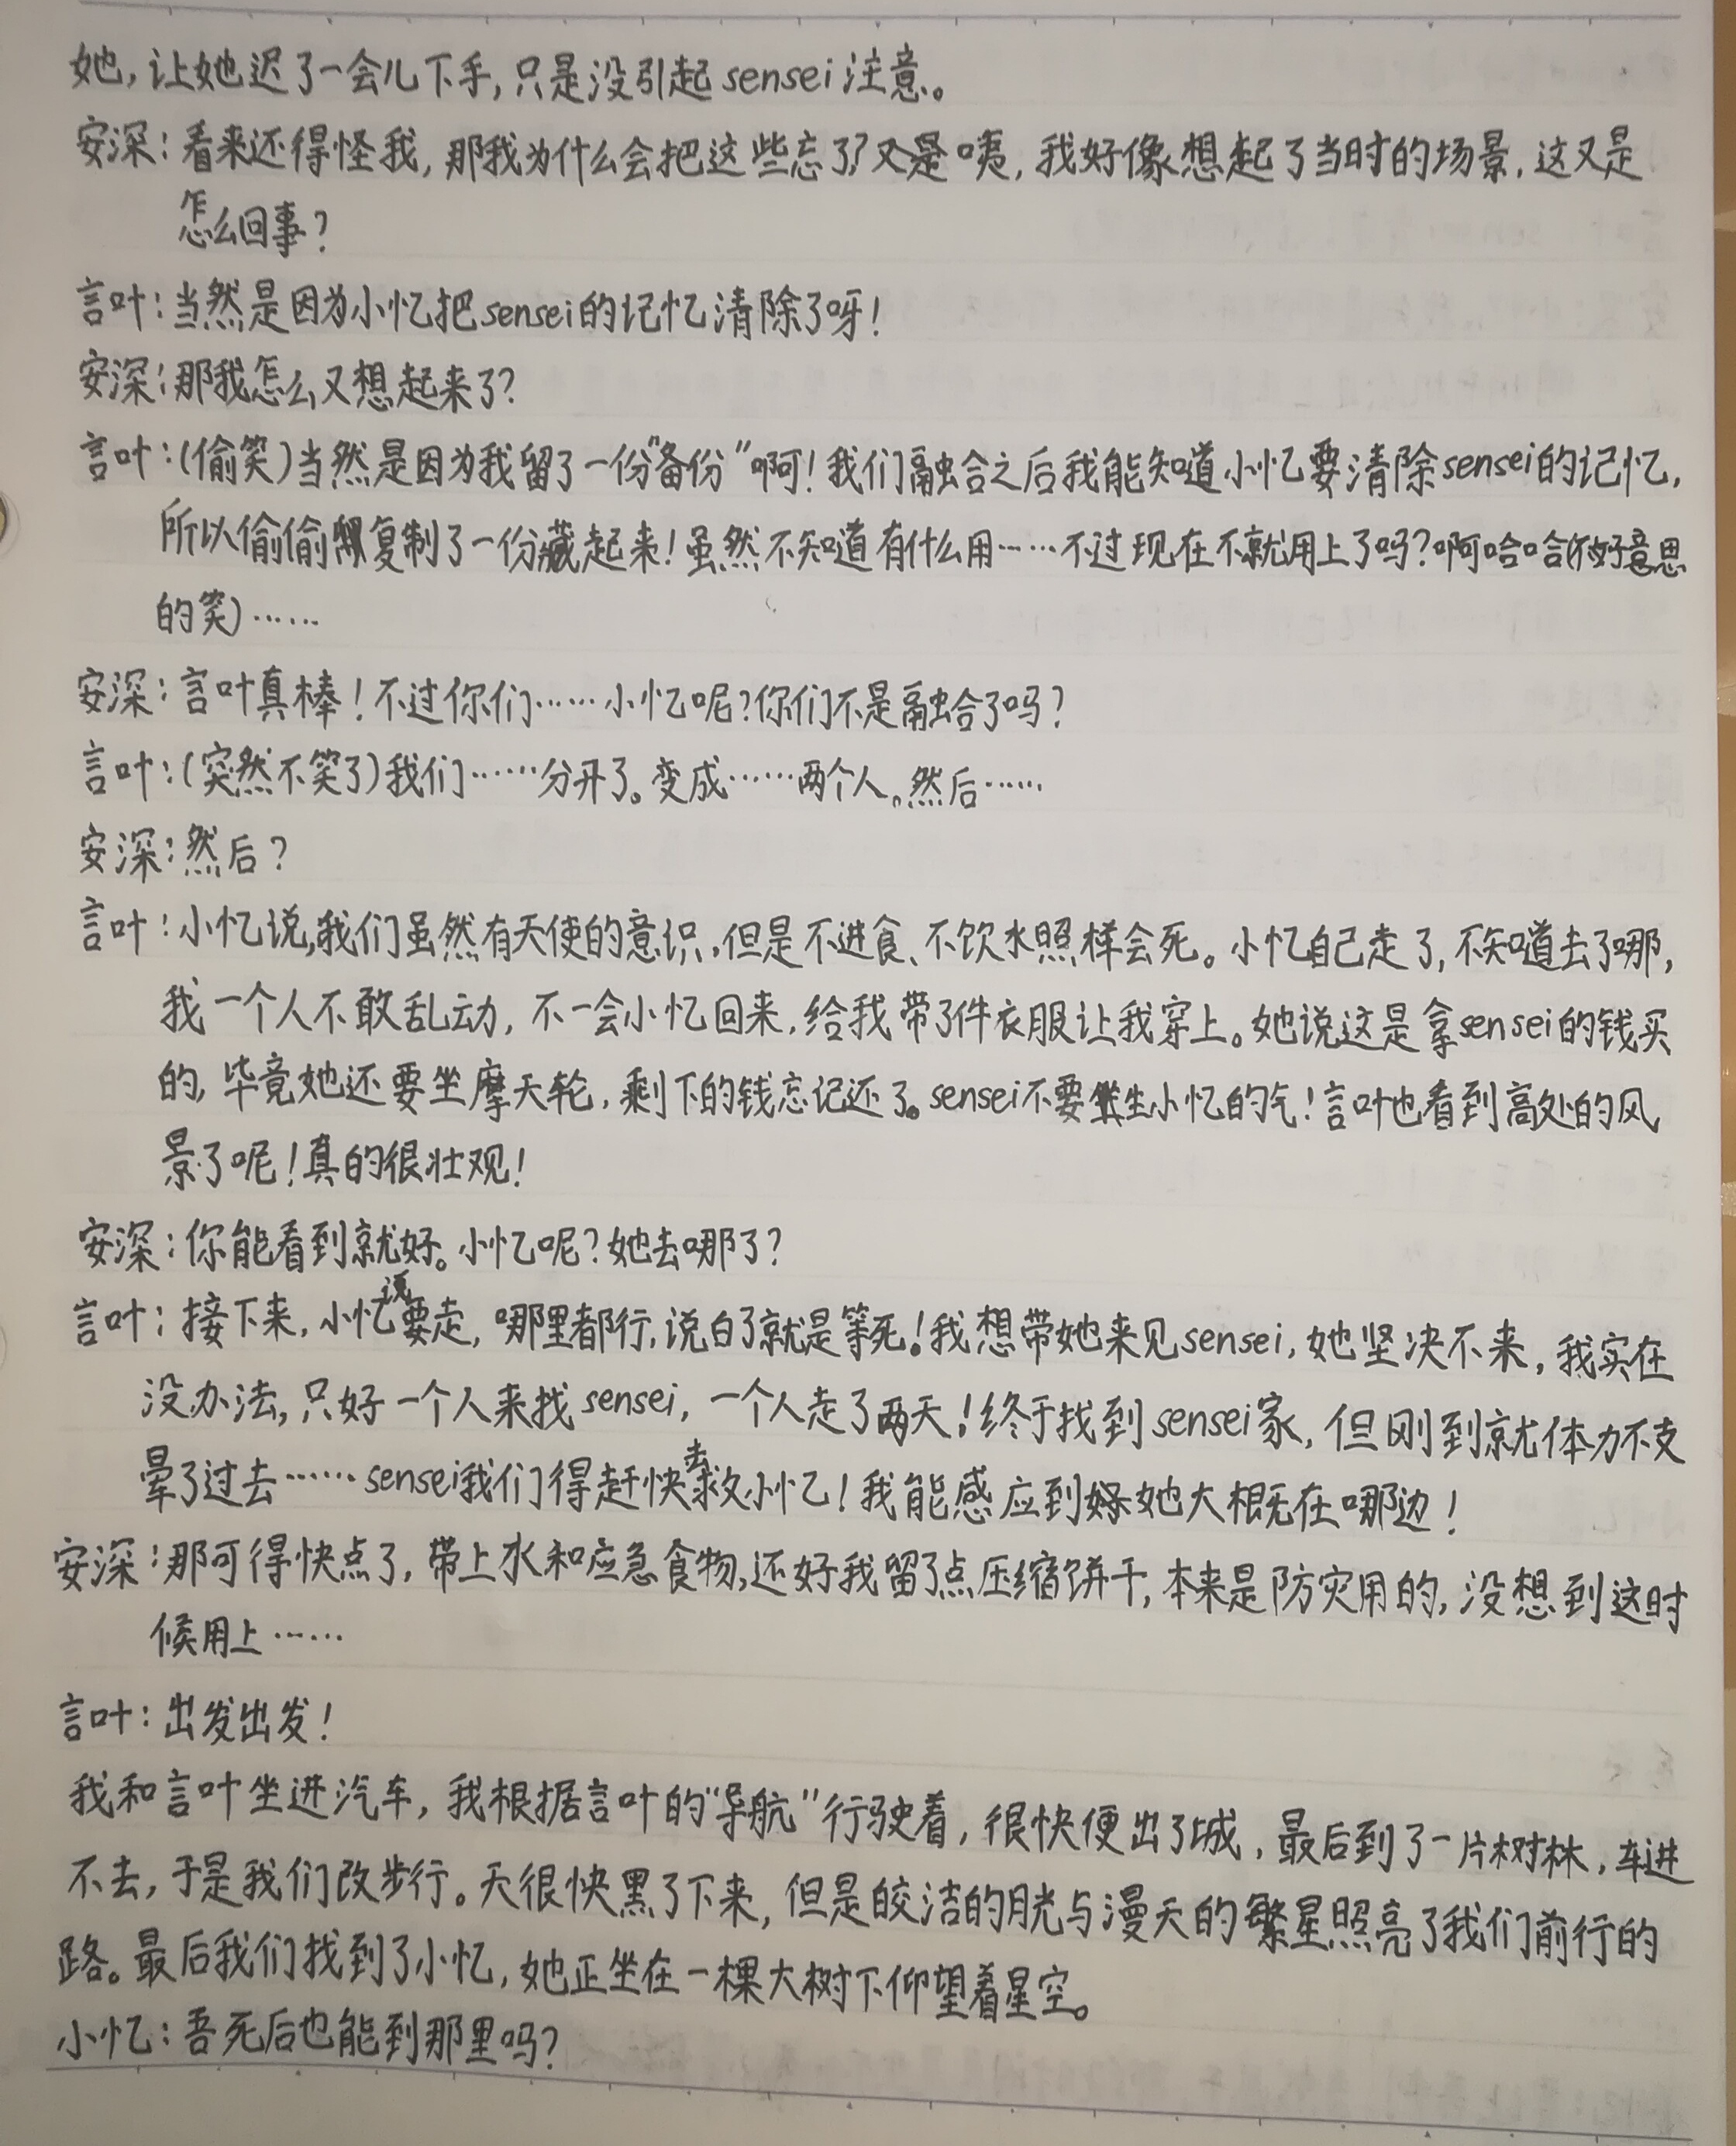 她，让她迟了一会儿下手，只是没引起sensei注意。
安深：看来还得怪我，那我为什么会把这些忘了？又是咦，我好像想起了当时的场景，这又是
怎么回事？
言叶：当然是因为小忆把sensei的记忆清除了呀！
安深：那我怎么又想起来了？
言叶：（偷笑）当然是因为我留了一份“备份”啊！我们融合之后我能知道小忆要清除sensei的记忆，
所以偷偷复制了一份藏起来！虽然不知道有什么用……不过现在不就用上了吗？啊哈哈（不好意思
的笑）……
安深：言叶真棒！不过你们……小忆呢？你们不是融合了吗？
言叶：（突然不笑了）我们……分开了。变成……两个人。然后……
安深：然后？
言叶：小忆说，我们虽然有天使的意识，但是不进食、不饮水照样会死。小忆自己走了，不知道去了哪，
我一个人不敢乱动，不一会小忆回来，给我带了件衣服让我穿上。她说这是拿sensei的钱买
的，毕竟她还要坐摩天轮，剩下的钱忘记还了。sensei不要生小忆的气！言叶也看到高处的风
景了呢！真的很壮观！
安深：你能看到就好。小忆呢？她去哪了？
言叶：接下来，小忆说要走，哪里都行，说白了就是等死！我想带她来见sensei，她坚决不来，我实在
没办法，只好一个人来找sensei，一个人走了两天！终于找到sensei家，但刚到就体力不支
晕了过去……sensei我们得赶快去救小忆！我能感应到她大概在哪边！
安深：那可得快点了，带上水和应急食物，还好我留了点压缩饼干，本来是防灾用的，没想到这时
候用上……
言叶：出发出发！
我和言叶坐进汽车，我根据言叶的“导航”行驶着，很快便出了城，最后到了一片树林，车进
不去，于是我们改步行。天很快黑了下来，但是皎洁的月光与漫天的繁星照亮了我们前行的
路。最后我们找到了小忆，她正坐在一棵大树下仰望着星空。
小忆：吾死后也能到那里吗？